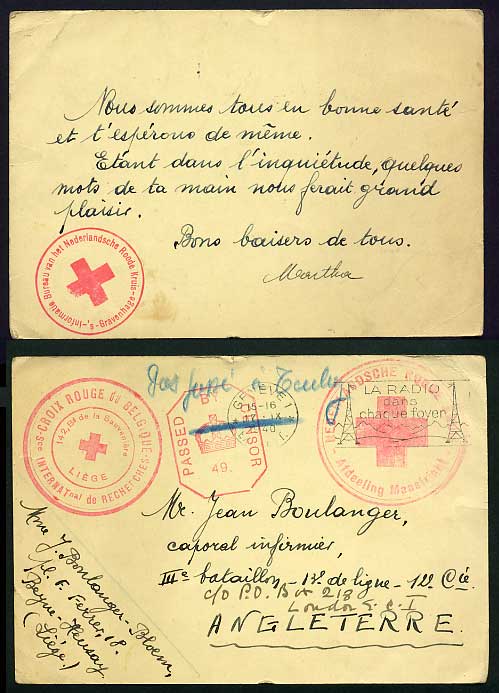 Nous sommes tous en bonne santé
et t'espérons de même.
Etant dans l'inquiétude, quelques
mots de ta main nous ferait grand
plaisir.
Bons baisers de tous.
Martha
Informatie Bureau van het Nederlandsche Roode Kruis
's-Gravenhage
CROIX ROUGE DU BELGIQUE
142, Bd de la Sauvenière
LIÉGE
INTERNATnal de RECHERCHES
PASSED
CENSOR
49.
GENÈVE 1
15-16
IX
40
LA RADIO
dans
chaque foyer
Afdeeling Maastricht
Mr. Jean Boulanger,
caporal infirmier,
IIIe bataillon - 1r. de ligne - 12e Cie
c/o P.O. Box 218
London E.C.1
ANGLETERRE.
Mme J. Boulanger-Bloem,
Pl. F. Ferrer, 18.
Beyne-Heusay
(Liége.)